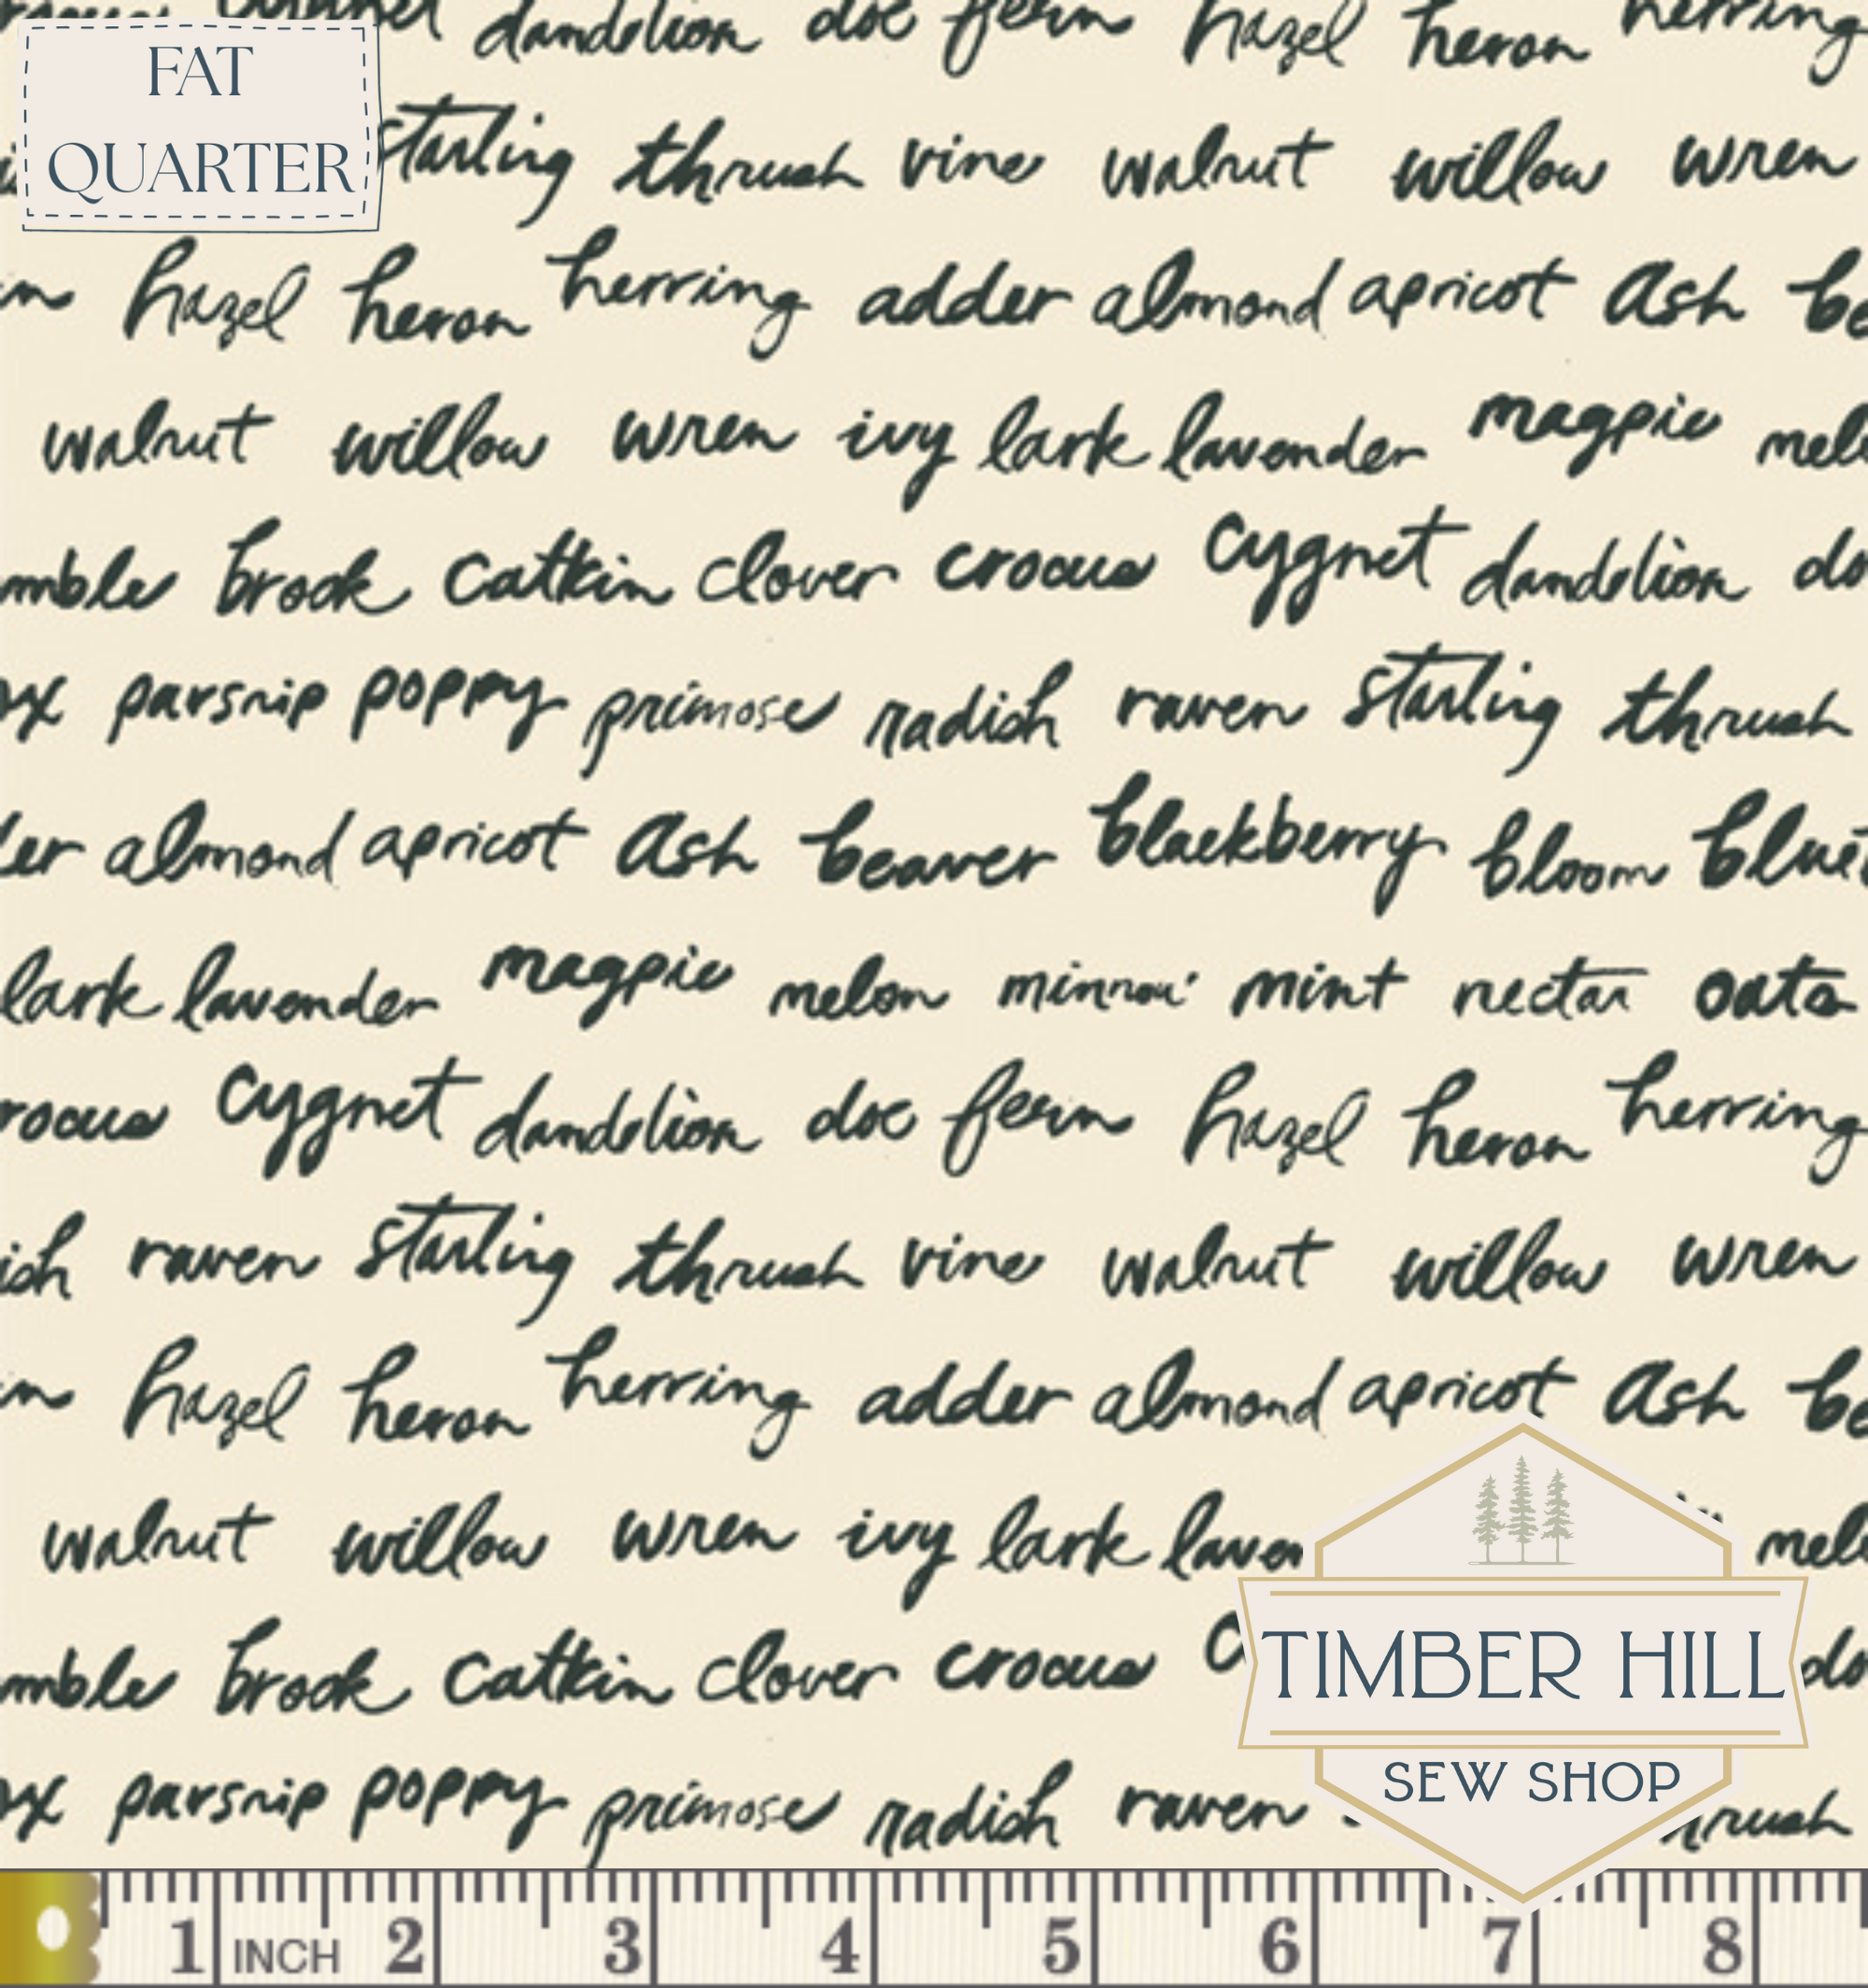 dandelion doe fern hazel heron herring
FAT
QUARTER
starling thrush vine walnut willow wren
hazel heron herring adder almond apricot ash be
walnut willow wren ivy lark lavender magpie mel
mble brook catkin clover crocus cygnet dandelion do
ox parsnip poppy primose radish raven starling thrush
der almond apricot ash beaver blackberry bloom blue
lark lavender magpie melon minnow mint nectar oats
rocus cygnet dandelion doe fern hazel heron herring
ish raven starling thrush vine walnut willow wren
hazel heron herring adder almond apricot ash be
walnut willow wren ivy lark laven mel
mble brook catkin clover crocus c do
TIMBER HILL
SEW SHOP
ox parsnip poppy primose radish raven hrush
1 INCH 2 3 4 5 6 7 8